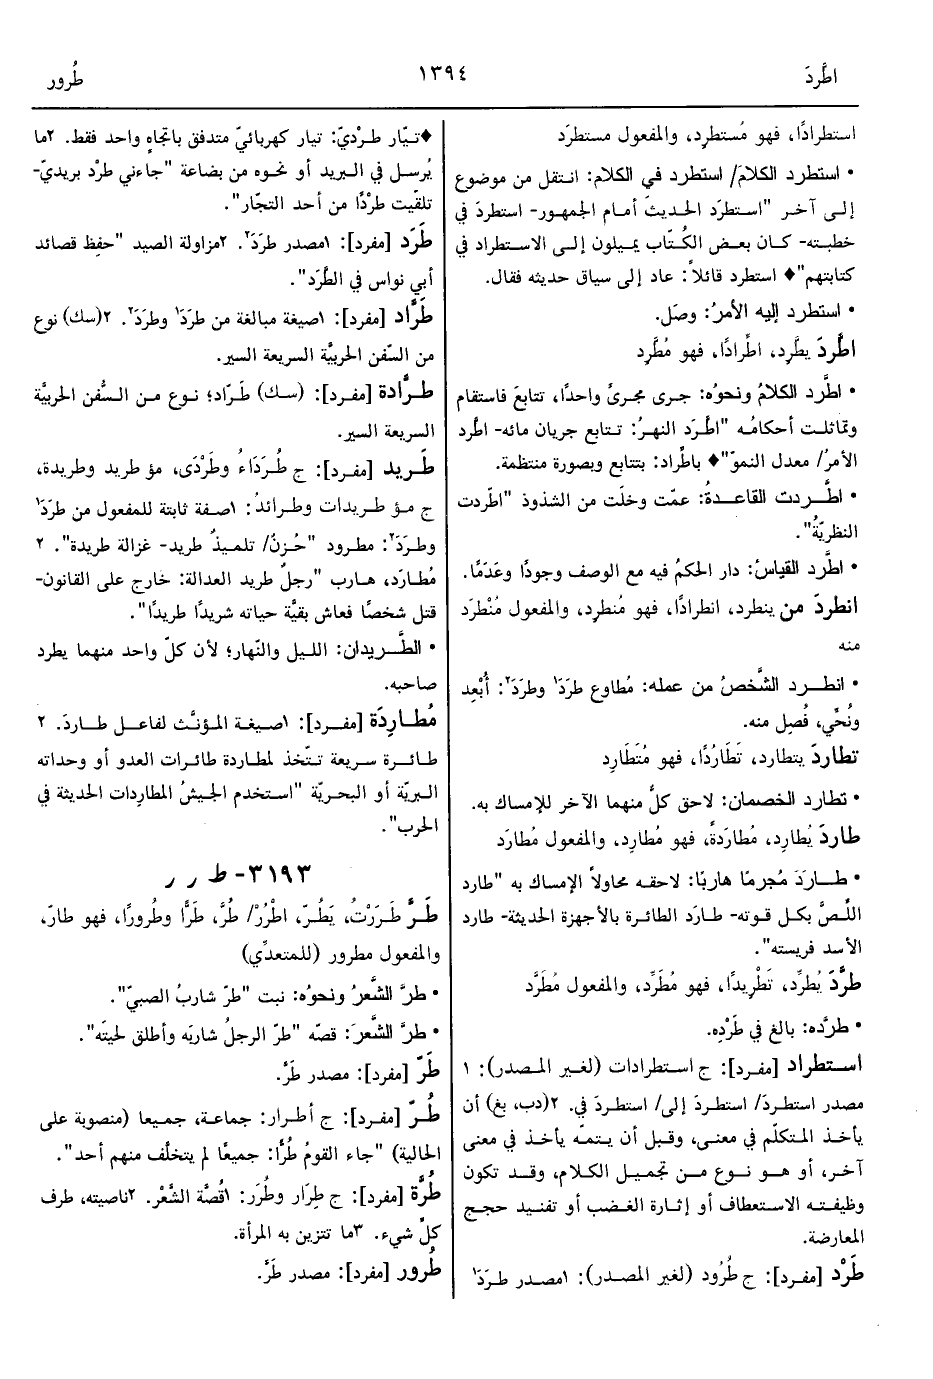 اطَّردَ
١٣٩٤
طُرور
استطرادًا، فهو مُستطرِد، والمفعول مستطرَد
• استطرد الكلامَ/ استطرد في الكلام: انتقل من موضوع
إلى آخر "استطرَد الحديثَ أمام الجمهور- استطردَ في
خطبته- كان بعض الكُتّاب يميلون إلى الاستطراد في
كتابتهم"♦ استطرد قائلاً: عاد إلى سياق حديثه فقال.
• استطرد إليه الأمرُ: وصَل.
اطَّردَ يطَّرِد، اطِّرادًا، فهو مُطَّرِد
• اطَّرد الكلامُ ونحوُه: جرى مجرىً واحدًا، تتابعَ فاستقام
وتماثلت أحكامُه "اطَّرَد النهرُ: تتابع جريان مائه- اطَّرد
الأمرُ/ معدل النموّ"♦ باطِّراد: بتتابع وبصورة منتظمة.
• اطَّردت القاعدةُ: عمّت وخلَت من الشذوذ "اطّردت
النظريّةُ".
• اطَّرد القياسُ: دار الحكمُ فيه مع الوصف وجودًا وعَدَمًا.
انطردَ من ينطرد، انطرادًا، فهو مُنطرِد، والمفعول مُنْطرَد
منه
• انطرد الشَّخصُ من عمله: مُطاوع طرَدَ١ وطرَدَ٢: أُبْعِد
ونُحِّي، فُصِل منه.
تطاردَ يتطارد، تَطَارُدًا، فهو مُتَطَارِد
• تطارد الخصمان: لاحق كلٌّ منهما الآخر للإمساك به.
طاردَ يُطارِد، مُطارَدةً، فهو مُطارِد، والمفعول مُطارَد
• طارَدَ مُجرمًا هاربًا: لاحقه محاولاً الإمساك به "طارد
اللِّصَّ بكل قوته- طارَد الطائرة بالأجهزة الحديثة- طارد
الأسد فريسته".
طرَّدَ يُطرِّد، تَطْرِيدًا، فهو مُطَرِّد، والمفعول مُطَرَّد
• طرَّده: بالغ في طَرْدِه.
استطراد [مفرد]: ج استطرادات (لغير المصدر): ١
مصدر استطردَ/ استطردَ إلى/ استطردَ في. ٢(دب، بغ) أن
يأخذ المتكلّم في معنى، وقبل أن يتمّه يأخذ في معنى
آخر، أو هو نوع من تجميل الكلام، وقد تكون
وظيفته الاستعطاف أو إثارة الغضب أو تفنيد حجج
المعارضة.
طَرْد [مفرد]: ج طُرُود (لغير المصدر): ١مصدر طرَدَ١
♦تيّار طرْديّ: تيار كهربائيّ متدفق باتجاهٍ واحد فقط. ٢ما
يُرسل في البريد أو نحوه من بضاعة "جاءني طرْد بريديّ-
تلقّيت طرْدًا من أحد التجّار".
طَرَد [مفرد]: ١مصدر طرَدَ٢. ٢مزاولة الصيد "حفِظ قصائد
أبي نواس في الطَّرَد".
طَرَّاد [مفرد]: ١صيغة مبالغة من طرَدَ١ وطرَدَ٢. ٢(سك) نوع
من السّفن الحربيَّة السريعة السير.
طرَّادة [مفرد]: (سك) طَرّاد؛ نوع من السُّفن الحربيَّة
السريعة السير.
طَريد [مفرد]: ج طُرَدَاءُ وطَرْدَى، مؤ طريد وطريدة،
ج مؤ طريدات وطرائدُ: ١صفة ثابتة للمفعول من طرَدَ١
وطرَدَ٢: مطرود "حُزنٌ/ تلميذٌ طريد- غزالة طريدة". ٢
مُطارَد، هارب "رجلٌ طريد العدالة: خارج على القانون-
قتل شخصًا فعاش بقيَّة حياته شريدًا طريدًا".
• الطَّريدان: الليل والنّهار؛ لأن كلّ واحد منهما يطرد
صاحبه.
مُطارِدَة [مفرد]: ١صيغة المؤنَّث لفاعل طاردَ. ٢
طائرة سريعة تتّخذ لمطاردة طائرات العدو أو وحداته
البريّة أو البحريّة "استخدم الجيشُ المطارِدات الحديثة في
الحرب".
٣١٩٣- ط ر ر
طَرَّ طَرَرْتُ، يَطُرّ، اطْرُرْ/ طُرَّ، طَرًّا وطُرورًا، فهو طارّ،
والمفعول مطرور (للمتعدِّي)
• طرَّ الشَّعرُ ونحوُه: نبت "طرّ شاربُ الصبيّ".
• طرَّ الشَّعرَ: قصّه "طرّ الرجلُ شاربَه وأطلق لحيتَه".
طَرّ [مفرد]: مصدر طَرَّ.
طُرّ [مفرد]: ج أطرار: جماعة، جميعا (منصوبة على
الحالية) "جاء القومُ طُرًّا: جميعًا لم يتخلَّف منهم أحد".
طُرَّة [مفرد]: ج طِرَار وطُرَر: ١قُصَّة الشَّعْر. ٢ناصيته، طرف
كلِّ شيء. ٣ما تتزين به المرأة.
طُرور [مفرد]: مصدر طَرَّ.